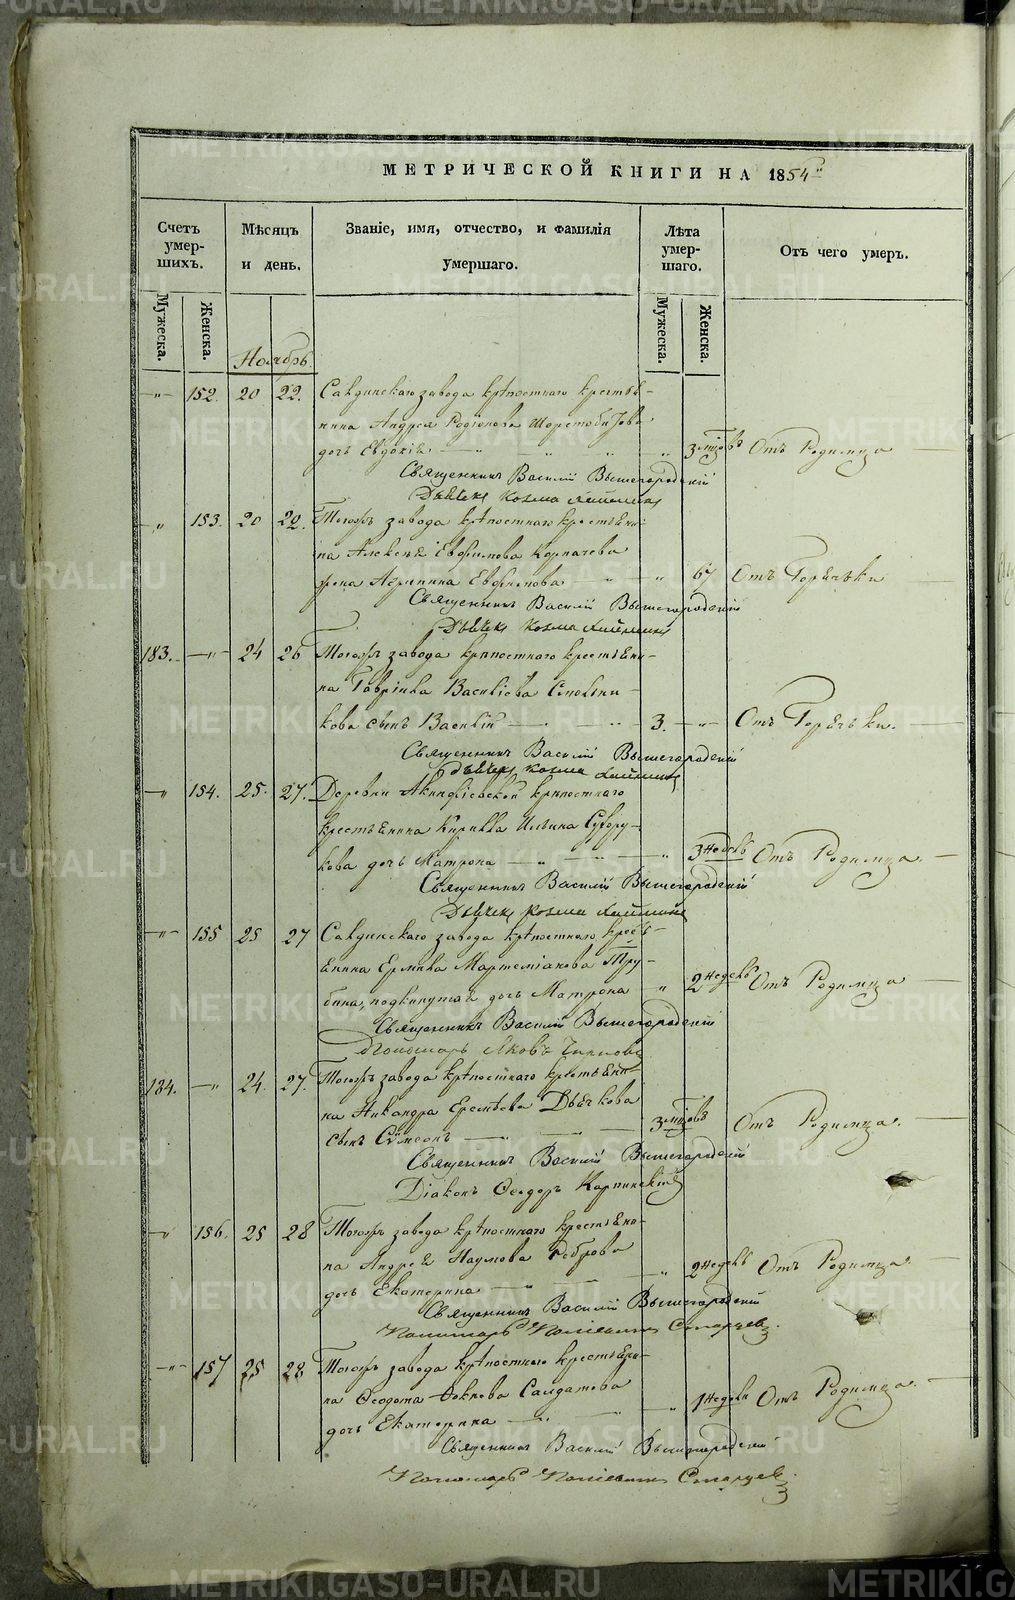 МЕТРИЧЕСКОЙ КНИГИ НА 1854
Счетъ умер-шихъ.
Мѣсяцъ и день.
Званіе, имя, отчество, и фамилія умершаго.
Лѣта умер-шаго.
Отъ чего умеръ.
Мужеска.
Женска.
Мужеска.
Женска.
Ноябрь
152. 20 22. Салдинскаго завода крѣпостнаго крестья-
нина Андрея Родіонова
дочь Евдокія 3 мѣсцовъ Отъ Родимца
Священникъ Василій Вышегородскій
Дьячекъ Козма
153. 20 22. Тогожъ завода крѣпостнаго крестьяни-
на Алексѣя Евфимова Корпачева
жена Агрипина Евфимова 67 Отъ Горячки
Священникъ Василій Вышегородскій
Дьячекъ Козма
183. 24 26 Тогожъ завода крѣпостнаго крестьяни-
на Гаврила Василіева
кова сынъ Василій 3. Отъ Горячки.
Священникъ Василій Вышегородскій
Дьячекъ Козма
154. 25. 27. Деревни Акинфіевской крѣпостнаго
крестьянина Кирилла Ильина Сухору-
кова дочь Матрона 3 недель Отъ Родимца.
Священникъ Василій Вышегородскій
Дьячекъ Козма
155 25 27 Салдинскаго завода крѣпостнаго кресть-
янина Ермила Мартеміанова Тру-
бина, подкинутая дочь Матрона 2 недель Отъ Родимца
Священникъ Василій Вышегородскій
Пономарь Яковъ
184. 24 27. Тогожъ завода крѣпостнаго крестьяни-
на Никандра Еремѣева Дьячкова
сынъ Сѵмеонъ 3 мѣсцовъ Отъ Родимца.
Священникъ Василій Вышегородскій
Діаконъ Ѳеодоръ Карпинскій
156. 25 28 Тогожъ завода крѣпостнаго крестьяни-
на Андрея Наумова
дочь Екатерина 2 недель Отъ Родимца
Священникъ Василій Вышегородскій
Пономарь Старцевъ
157 25 28 Тогожъ завода крѣпостнаго крестьяни-
на Ѳедота Салдатова
дочь Екатерина 1 недели Отъ Родимца.
Священникъ Василій Вышегородскій
Пономарь Старцевъ
METRIKI.GASO-URAL.RU